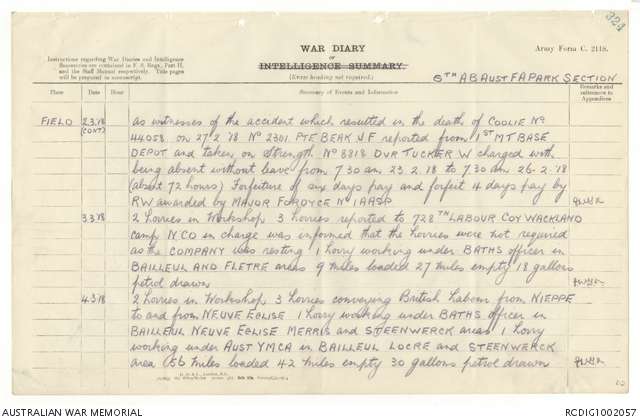 323
WAR DIARY
or
INTELLIGENCE SUMMARY.
(Erase heading not required.)
Army Form C. 2118.
Instructions regarding War Diaries and Intelligence
Summaries are contained in F. S. Regs., Part II.
and the Staff Manual respectively. Title pages
will be prepared in manuscript.
6TH AB AUST FA PARK SECTION
Place Date Hour Summary of Events and Information Remarks and references to Appendices
FIELD 2.3.18 (CONT) as witnesses of the accident which resulted in the death of COOLIE No
44058 on 27/2/18 No 2301 PTE BEAK J.F reported from 1ST MT BASE
DEPOT and taken on Strength No 8818 DVR TUCKER W charged with
being absent without leave from 7 30 am 23.2.18 to 7 30 am 26.2.18
(absent 72 hours) Forfeiture of six days pay and forfeit 4 days pay by
RW awarded by MAJOR FORDYCE No 1 AASP
3.3.18 2 lorries in Workshop 3 lorries reported to 728TH LABOUR COY WACKLAND
camp NCO in charge was informed that the lorries were not required
as the COMPANY was resting 1 lorry working under BATHS officer in
BAILLEUL AND FLETRE areas 9 miles loaded 27 miles empty 18 gallons
petrol drawn
4.3.18 2 lorries in Workshop 3 lorries conveying British Labour from NIEPPE
to and from NEUVE EGLISE 1 lorry working under BATHS officer in
BAILLEUL NEUVE EGLISE MERRIS and STEENWERCK areas 1 lorry
working under AUST YMCA in BAILLEUL LOCRE and STEENWERCK
area 156 miles loaded 42 miles empty 30 gallons petrol drawn
AUSTRALIAN WAR MEMORIAL
RCDIG1002057